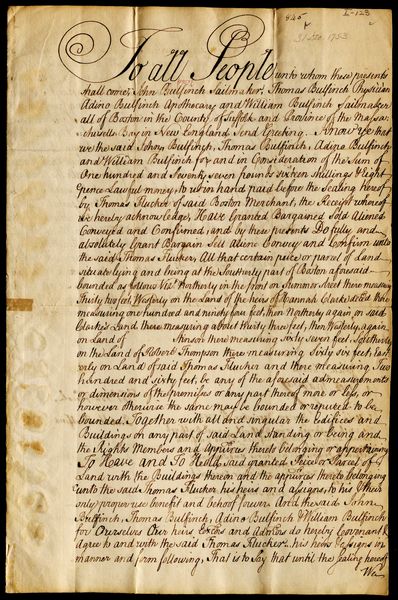 845
I-123
31 Dec. 1753
To all People unto whom these presents
shall come, John Bulfinch Sailmaker, Thomas Bulfinch Physician
Adino Bulfinch Apothecary and William Bulfinch Sailmaker
all of Boston in the County of Suffolk and Province of the Massa-
chusetts Bay in New England Send Greeting. Know ye that
we the said John Bulfinch, Thomas Bulfinch, Adino Bulfinch
and William Bulfinch for and in Consideration of the Sum of
One hundred and Seventy seven pounds sixteen shillings & Eight
pence Lawful money, to us in hand paid before the Sealing hereof
by Thomas Flucker of said Boston Merchant, the Receipt whereof
we hereby acknowledge, Have Granted Bargained Sold Aliened
Conveyed and Confirmed, and by these presents Do fully and
absolutely Grant Bargain Sell Aliene Convey and Confirm unto
the said Thomas Flucker, All that certain piece or parcel of Land
situate lying and being at the Southerly part of Boston aforesaid
bounded as follows Vizt. Northerly in the front on Summer Street there measuring
Thirty two feet, Westerly on the Land of the heirs of Hannah Clarke decd. there
measuring one hundred and ninety four feet, then Northerly again on said
Clarke's Land there measuring about thirty three feet, then Westerly again
on Land of Johnson there measuring sixty seven feet, Southerly
on the Land of Robert Thompson there measuring Sixty six feet East
erly on Land of said Thomas Flucker and there measuring Two
hundred and sixty feet, be any of the aforesaid admeasurements
or dimensions of the premisses or any part thereof more or less, or
however otherwise the same may be bounded or reputed to be
bounded. Together with all and singular the Edifices and
Buildings on any part of said Land Standing or being and
the Rights Members and Appurces thereto belonging or appertaining
To Have and To Hold said granted Piece or Parcel of
Land with the Buildings thereon and the appurces thereto belonging
unto the said Thomas Flucker his heirs and assigns, to his & their
only proper use benefit and behoof forever. And the said John
Bulfinch, Thomas Bulfinch, Adino Bulfinch & William Bulfinch
for Ourselves Our heirs Excrs and Admrs do hereby Covenant &
Agree to and with the said Thomas Flucker his heirs & assigns in
manner and form following, That is to Say that until the Sealing hereof
We